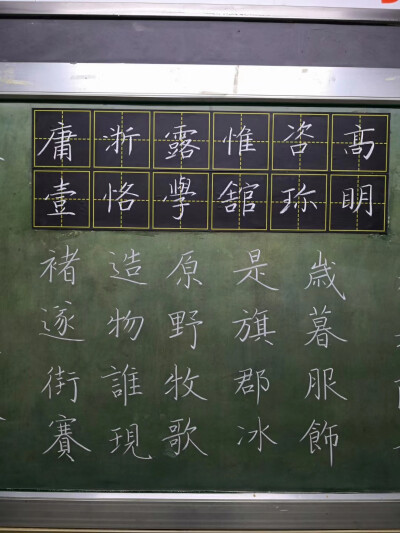 髙明
咨珎
惟舘
露學
恪
庸壹
歳暮服飾
是旗郡冰
原野牧歌
造物誰現
褚遂街賽